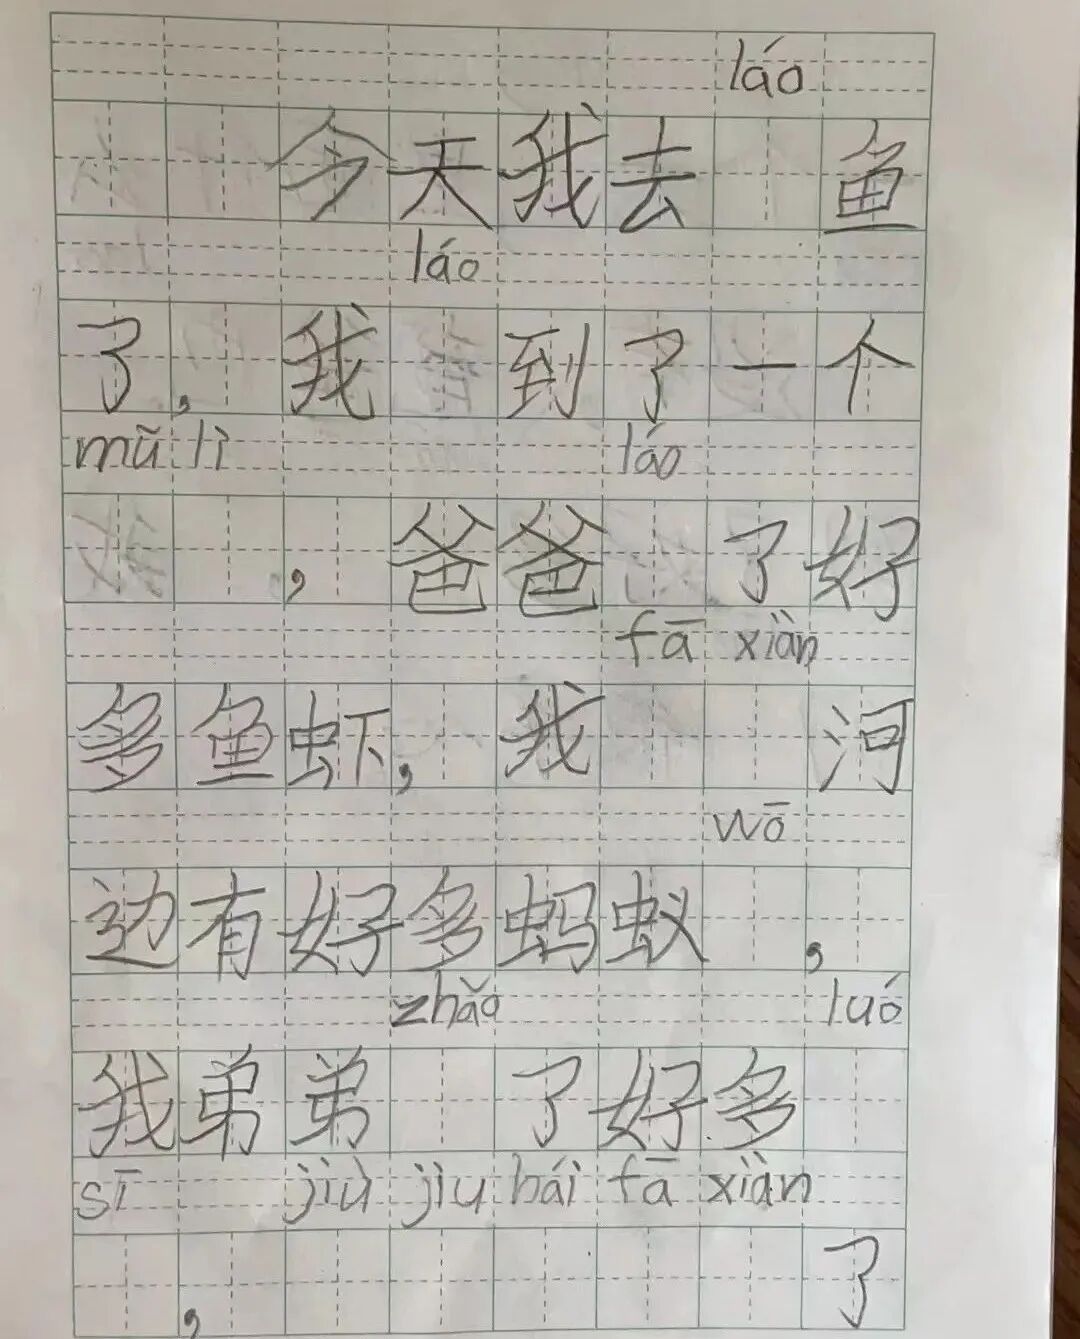 láo
今天我去 鱼
láo
了，我 到了一个
mǔ lì láo
，爸爸 了好
fā xiàn
多鱼虾，我 河
wō
边有好多蚂蚁 ，
zhǎo luó
我弟弟 了好多
sī jiù jìu bái fā xiàn
， 了